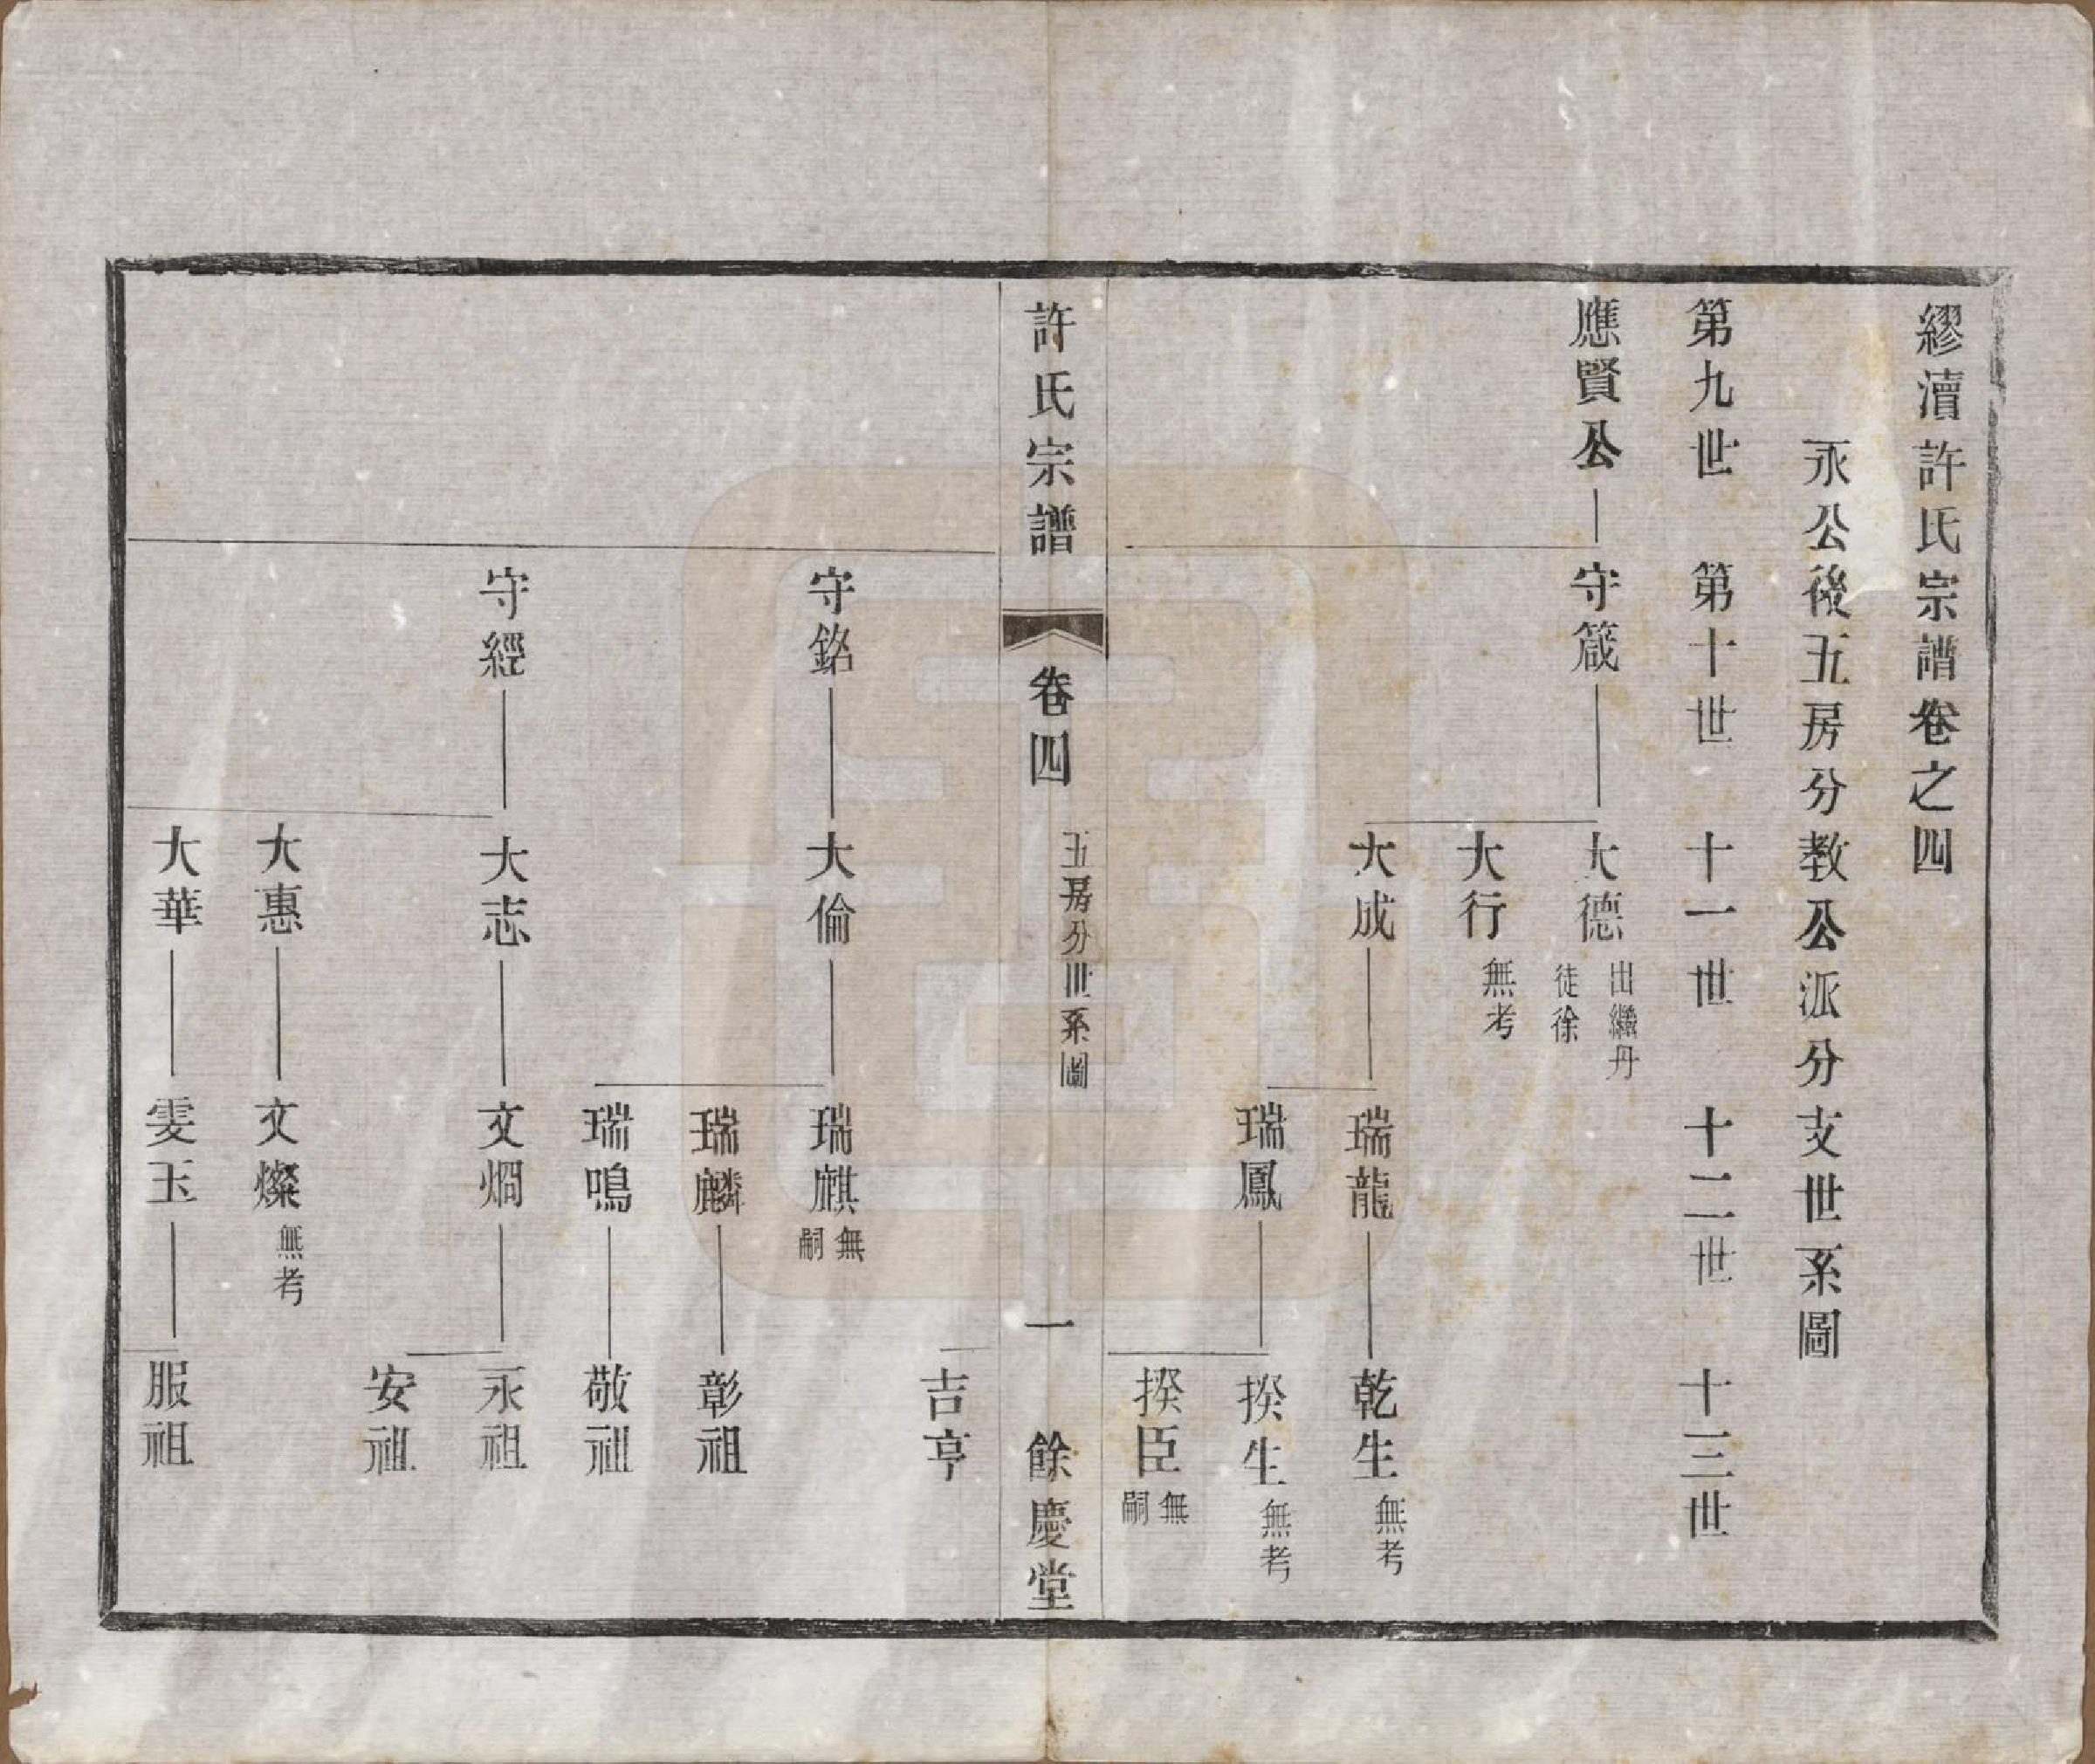 繆瀆許氏宗譜卷之四
永公後五房分教公派分支世系圖
第九世　第十世　十一世　十二世　十三世
應賢公　守箴　大德　出繼丹徒徐
大行　無考
大成　瑞龍　乾生　無考
瑞鳳　揆生　無考
揆臣　無嗣
許氏宗譜　卷四　五房分世系圖　一　餘慶堂
吉亨
守銘　大倫　瑞麒　無嗣
瑞麟　彰祖
瑞鳴　敬祖
守經　大志　文燗　永祖
安祖
大惠　文燦　無考
大華　雯玉　服祖